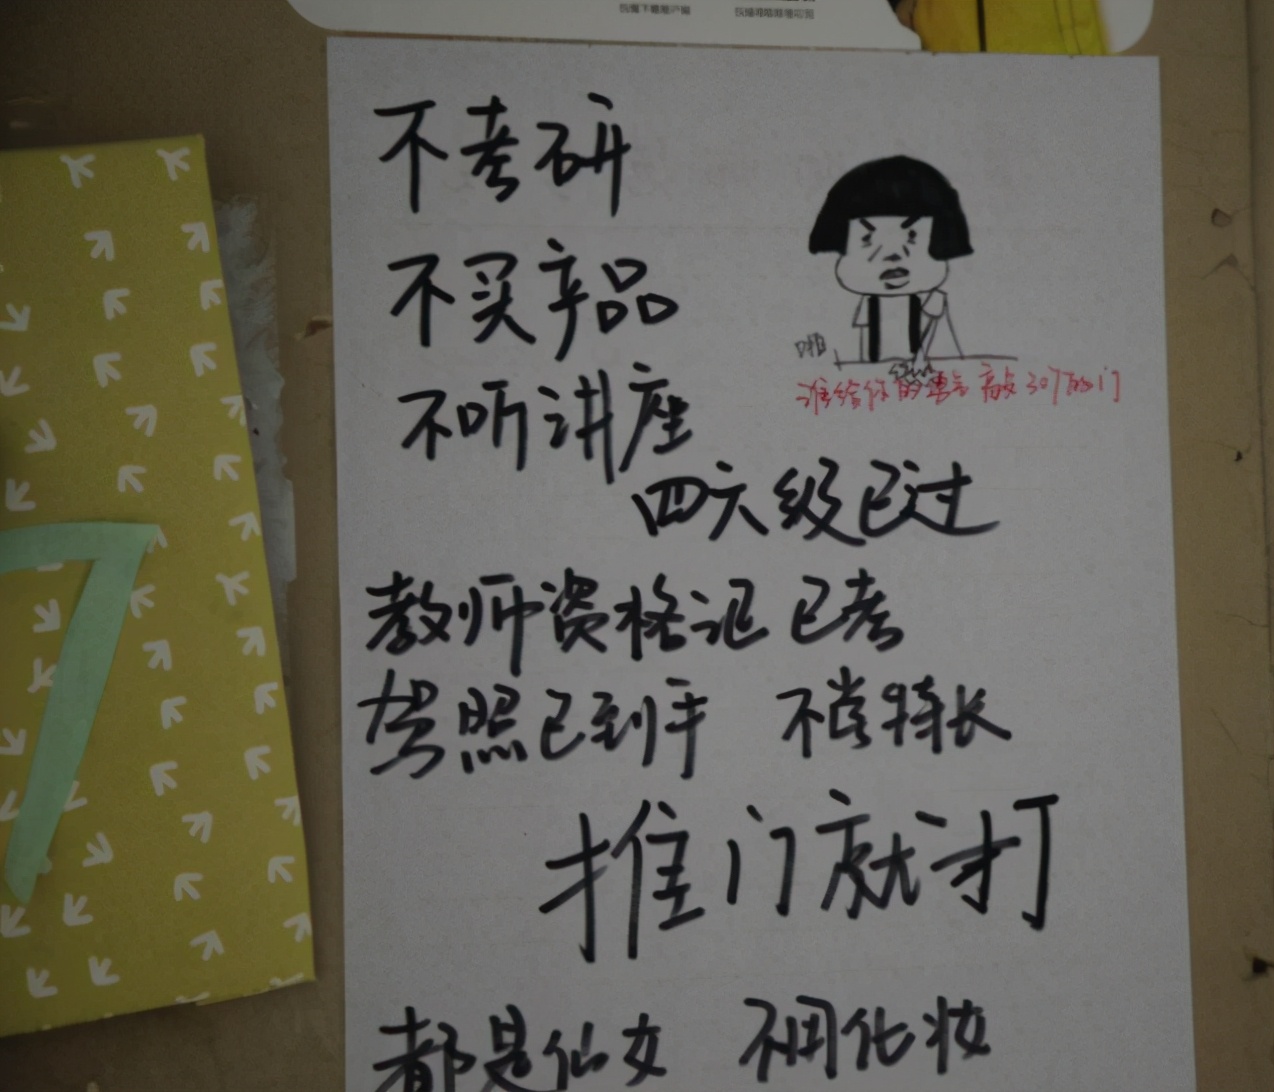 不考研
不买产品
不听讲座
啪
谁给你的勇气敲307的门
四六级已过
教师资格证 已考
驾照已到手 不学特长
推门就打
都是仙女 不用化妆